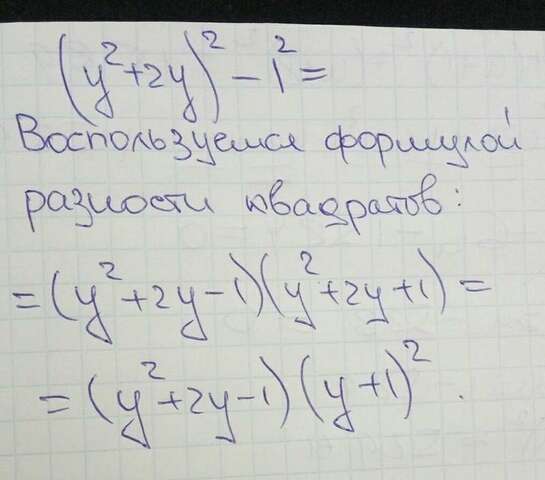 (y²+2y)²-1²=
Воспользуемся формулой
разности квадратов:
=(y²+2y-1)(y²+2y+1)=
=(y²+2y-1)(y+1)².